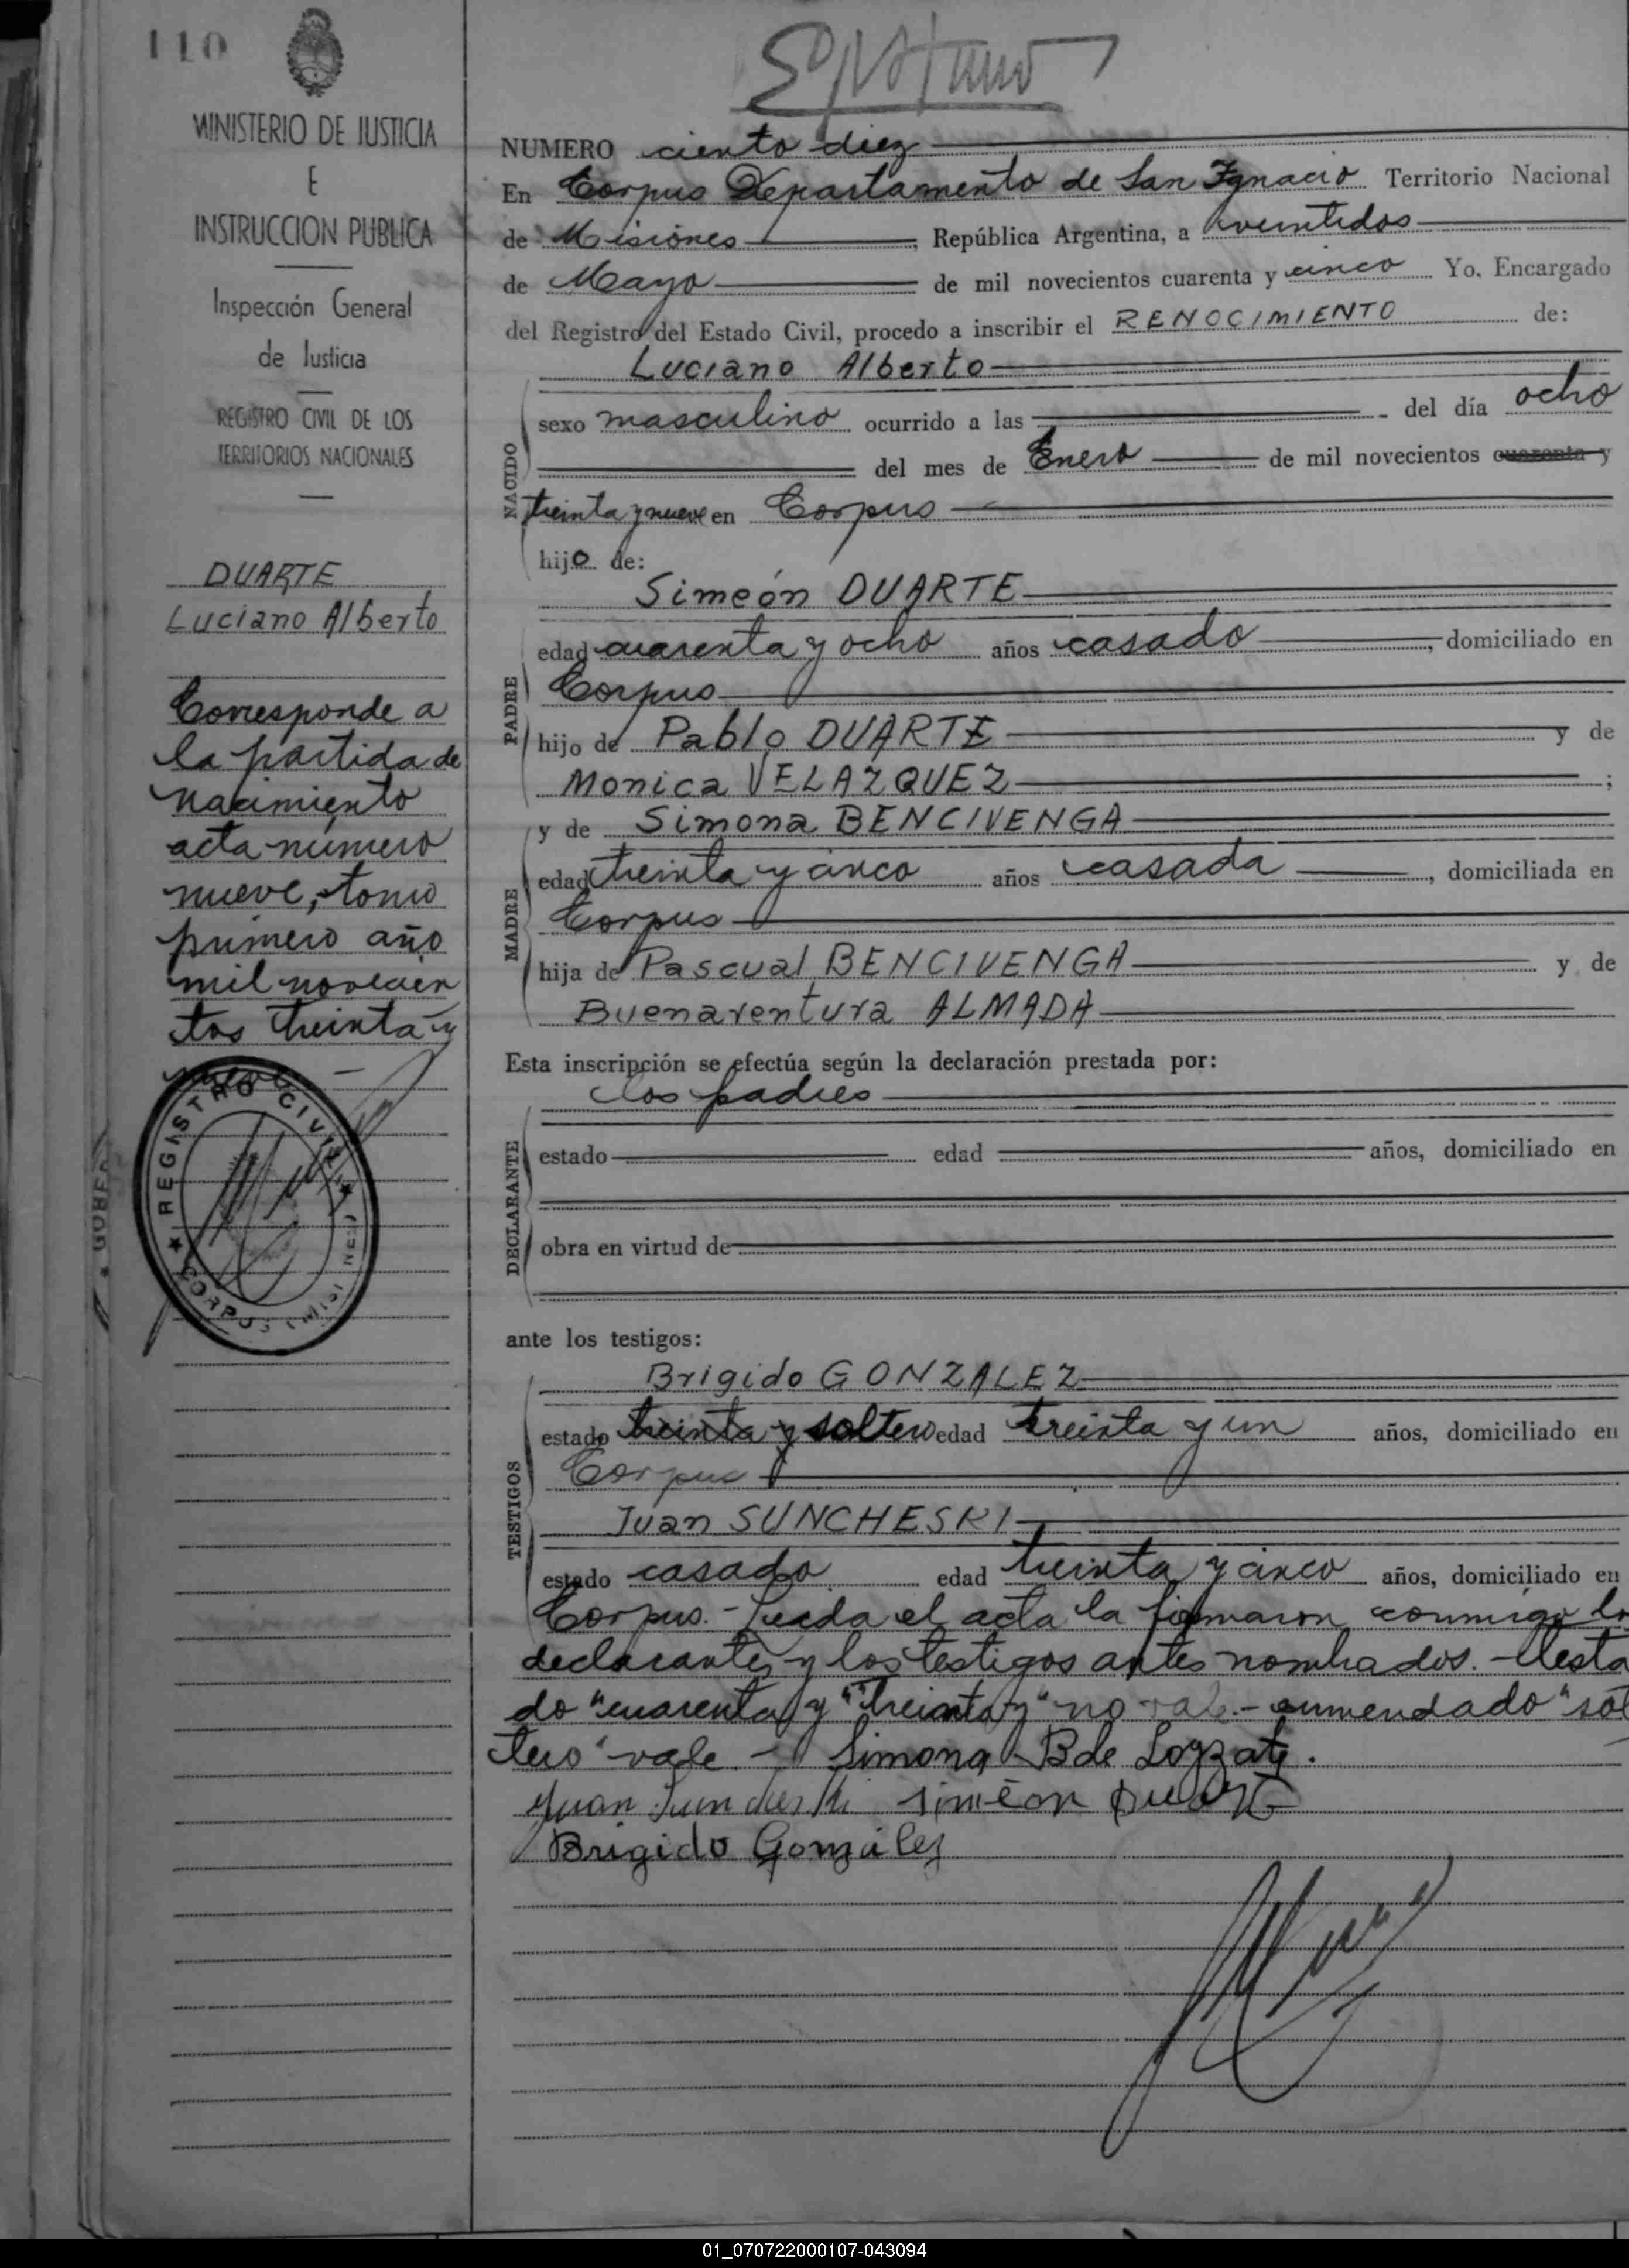 110
MINISTERIO DE JUSTICIA
E
INSTRUCCION PUBLICA
Inspección General
de Justicia
REGISTRO CIVIL DE LOS
TERRITORIOS NACIONALES
DUARTE
Luciano Alberto
Corresponde a
la partida de
nacimiento
acta número
nueve, tomo
primero año
mil novecien
tos treinta y
nueve
REGISTRO CIVIL
CORPUS
NUMERO ciento diez
En Corpus Departamento de San Ignacio Territorio Nacional
de Misiones, República Argentina, a veintidos
de Mayo de mil novecientos cuarenta y cinco Yo, Encargado
del Registro del Estado Civil, procedo a inscribir el RENOCIMIENTO de:
Luciano Alberto
NACIDO
sexo masculino ocurrido a las del día ocho
del mes de Enero de mil novecientos cuarenta y
treinta y nueve en Corpus
hijo de:
Simeón DUARTE
PADRE
edad cuarenta y ocho años casado, domiciliado en
Corpus
hijo de Pablo DUARTE y de
Monica VELAZQUEZ;
y de Simona BENCIVENGA
MADRE
edad treinta y cinco años casada, domiciliada en
Corpus
hija de Pascual BENCIVENGA y de
Buenaventura ALMADA
Esta inscripción se efectúa según la declaración prestada por:
los padres
DECLARANTE
estado edad años, domiciliado en
obra en virtud de
ante los testigos:
Brigido GONZALEZ
TESTIGOS
estado treinta y soltero edad treinta y un años, domiciliado en
Corpus
Juan SUNCHESKI
estado casado edad treinta y cinco años, domiciliado en
Corpus.- Leida el acta la firmaron conmigo lo
declarantes y los testigos antes nombrados.- Testa
do "cuarenta y" "treinta y" no vale.- enmendado "sol
tero" vale.- Simona B de
Juan Suncheski Simeón Duarte
Brigido Gonzalez
01_070722000107-043094